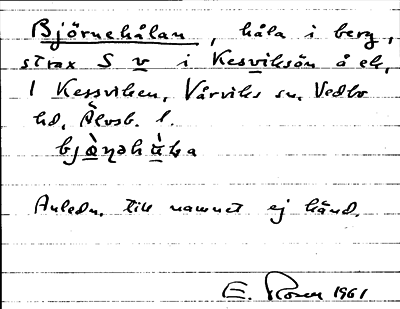 Björnehålan, håla i berg,
strax S v i Kesviksön å ek,
l Kessviken, Vårviks sn, Vedbo
hd, Älvsb. l.
Anledn. till namnet ej känd.
E. Rosen 1961